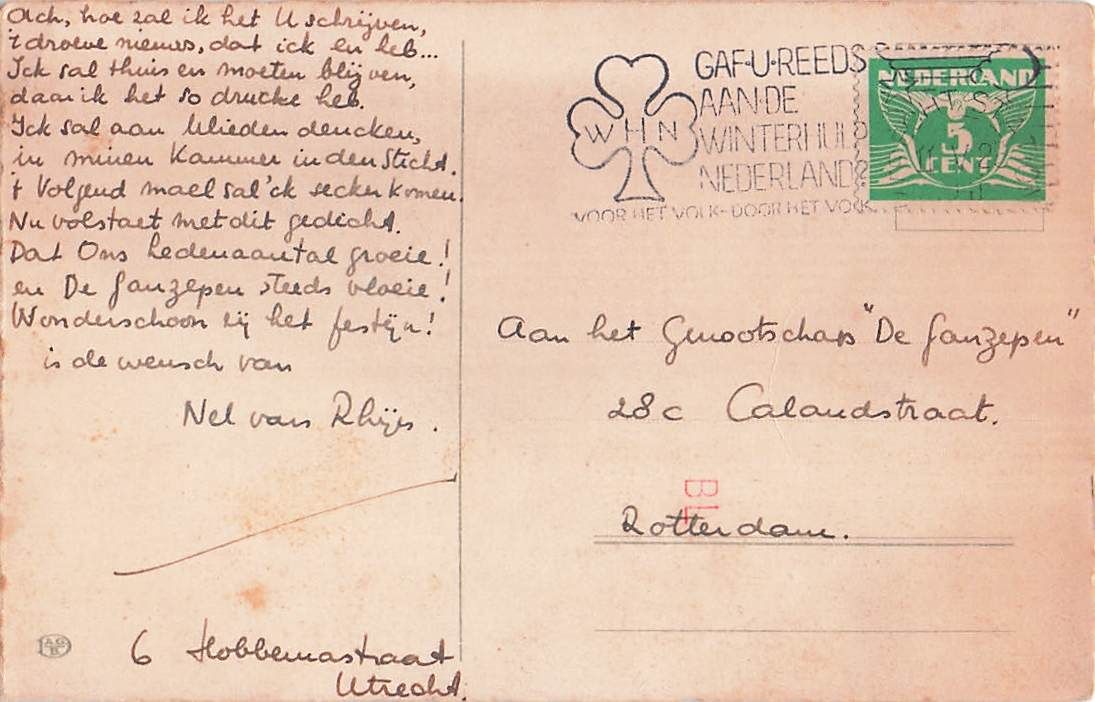 Och, hoe zal ik het U schrijven,
't droeve nieuws, dat ick en heb...
Ick sal thuis en moeten blijven,
daar ik het so drucke heb.
Ick sal aan Ulieden dencken,
in minen Kammer in den Sticht.
't Volgend mael sal 'ck secker komen.
Nu volstaet met dit gedicht.
Dat Ons ledenaantal groeie!
en De Ganzepen steeds vloeie!
Wonderschoon zij het festijn!
is de wensch van
Nel van Rhijs.
6 Hobbemastraat
Utrecht.
W H N
GAF·U·REEDS
AAN·DE
WINTERHULP
NEDERLAND?
VOOR HET VOLK - DOOR HET VOLK
NEDERLAND
5
CENT
Aan het Genootschap "De Ganzepen"
28c Calandstraat.
BL
Rotterdam.